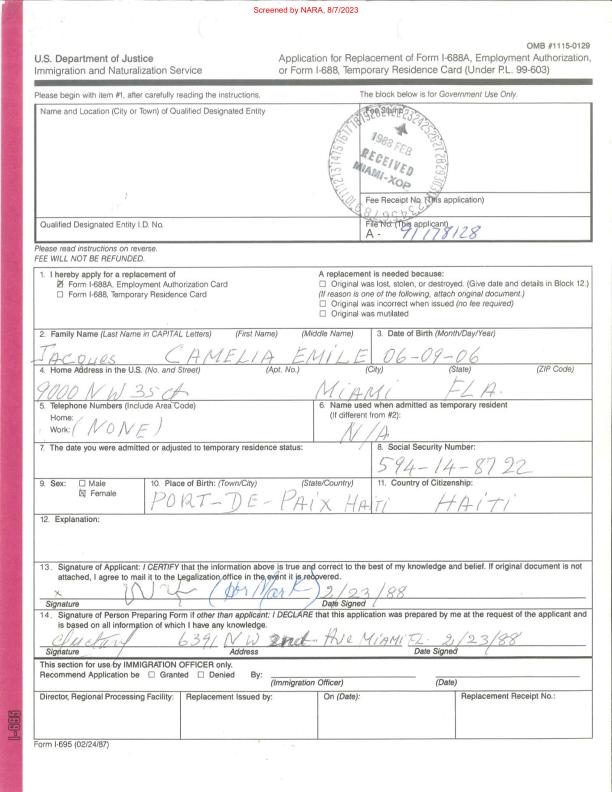 Screened by NARA, 8/7/2023
OMB #1115-0129
U.S. Department of Justice
Immigration and Naturalization Service
Application for Replacement of Form I-688A, Employment Authorization,
or Form I-688, Temporary Residence Card (Under P.L. 99-603)
Please begin with item #1, after carefully reading the instructions.
The block below is for Government Use Only.
Name and Location (City or Town) of Qualified Designated Entity
Fee Stamp
1988 FEB
RECEIVED
MIAMI-XOP
Fee Receipt No. (This application)
Qualified Designated Entity I.D. No.
File No. (This applicant)
A - 91178128
Please read instructions on reverse.
FEE WILL NOT BE REFUNDED.
1. I hereby apply for a replacement of
☒ Form I-688A, Employment Authorization Card
☐ Form I-688, Temporary Residence Card
A replacement is needed because:
☐ Original was lost, stolen, or destroyed. (Give date and details in Block 12.)
(If reason is one of the following, attach original document.)
☐ Original was incorrect when issued (no fee required)
☐ Original was mutilated
2. Family Name (Last Name in CAPITAL Letters) (First Name) (Middle Name)
Jacques CAMELIA EMILE
3. Date of Birth (Month/Day/Year)
06-09-06
4. Home Address in the U.S. (No. and Street) (Apt. No.) (City) (State) (ZIP Code)
9000 NW 35 ct MiAMi FLA.
5. Telephone Numbers (Include Area Code)
Home:
Work: (NONE)
6. Name used when admitted as temporary resident
(If different from #2):
N/A
7. The date you were admitted or adjusted to temporary residence status:
8. Social Security Number:
594-14-8722
9. Sex: ☐ Male
☒ Female
10. Place of Birth: (Town/City) (State/Country)
PORT-DE-PAiX HAiTi
11. Country of Citizenship:
HAiTi
12. Explanation:
13. Signature of Applicant: I CERTIFY that the information above is true and correct to the best of my knowledge and belief. If original document is not
attached, I agree to mail it to the Legalization office in the event it is recovered.
x (her Mark) 2/23/88
Signature Date Signed
14. Signature of Person Preparing Form if other than applicant: I DECLARE that this application was prepared by me at the request of the applicant and
is based on all information of which I have any knowledge.
6391 NW 2nd Ave MIAMI FL. 2/23/88
Signature Address Date Signed
This section for use by IMMIGRATION OFFICER only.
Recommend Application be ☐ Granted ☐ Denied By:
(Immigration Officer) (Date)
Director, Regional Processing Facility:
Replacement Issued by:
On (Date):
Replacement Receipt No.:
I-695
Form I-695 (02/24/87)